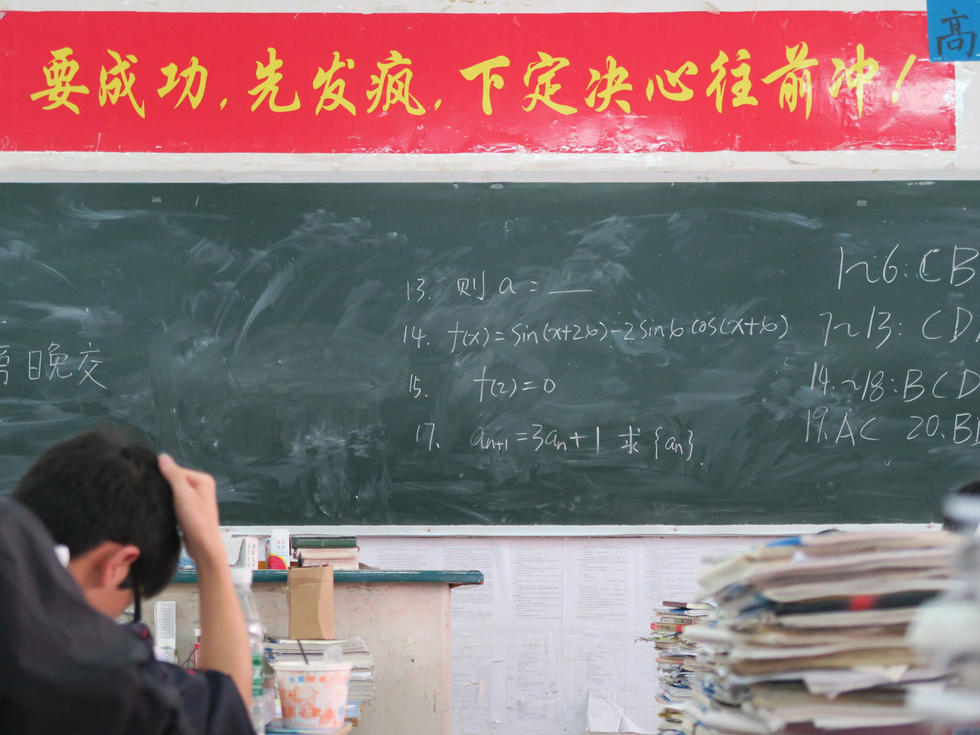 要成功,先发疯,下定决心往前冲!
高
13. 则 a = __
14. f(x)=sin(x+2φ)-2sinφcos(x+φ)
15. f(2)=0
17. aₙ₊₁=3aₙ+1 求{aₙ}.
日晚交
1~6: CB
7~13: CD
14~18: BCD
19.AC 20.B